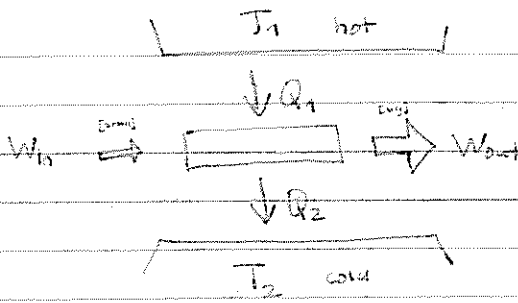 T₁ hot
Q₁
[small] [big]
W_in W_out
Q₂
T₂ cold